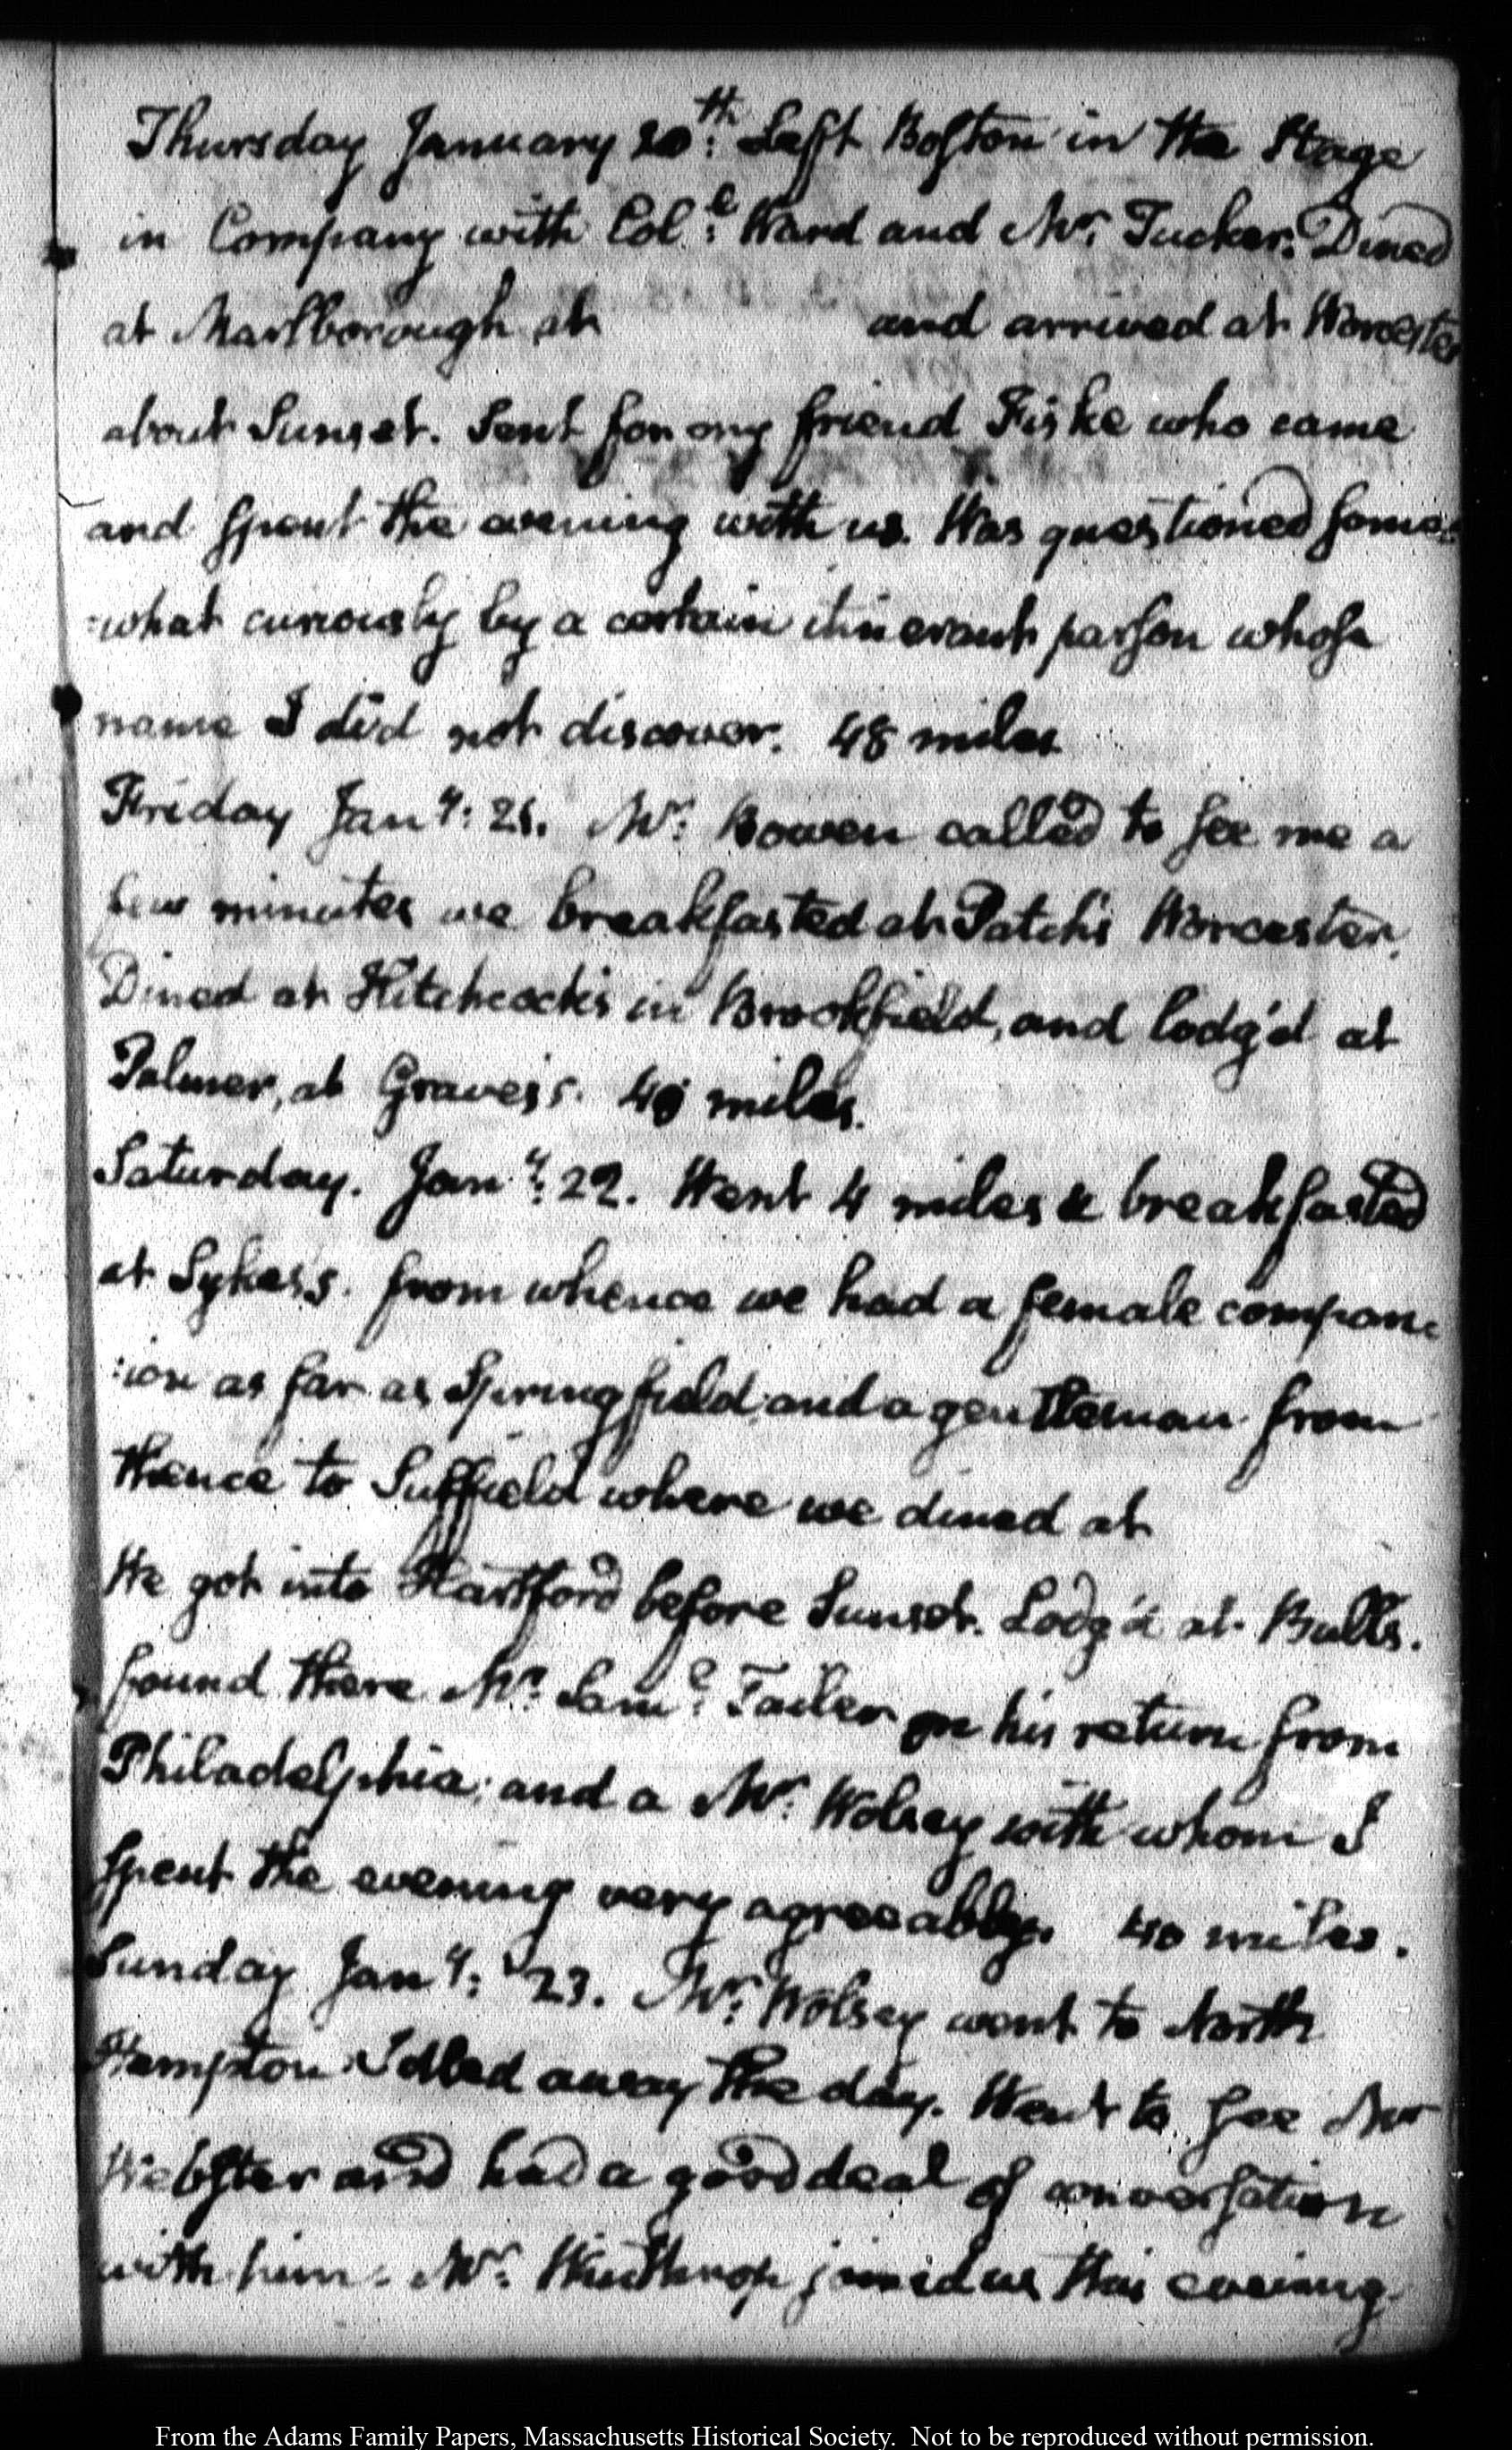 Thursday January 20th: Left Boston in the Stage
in Company with Coll: Ward and Mr: Tucker. Dined
at Marlborough at and arrived at Worcester
about Sunset. Sent for my friend Fiske who came
and spent the evening with us. Was questioned some:
:what curiously by a certain itinerant parson whose
name I did not discover. 48 miles
Friday Jany: 21. Mr: Bowen called to see me a
few minutes we breakfasted at Patch's Worcester.
Dined at Hitchcock's in Brookfield, and lodg'd at
Palmer, at Graves's. 40 miles.
Saturday. Jany: 22. Went 4 miles & breakfasted
at Sykes's. from whence we had a female compan:
:ion as far as Springfield and a gentleman from
thence to Suffield where we dined at
We got into Hartford before Sunset. Lodg'd at Bulls.
found there Mr: Saml: Tailer on his return from
Philadelphia; and a Mr: Wolsey with whom I
spent the evening very agreeably. 40 miles.
Sunday Jany: 23. Mr: Wolsey went to North
Hampton. Idled away the day. Went to see Mr
Webster and had a good deal of conversation
with him. Mr: Winthrop joined us this evening.
From the Adams Family Papers, Massachusetts Historical Society. Not to be reproduced without permission.